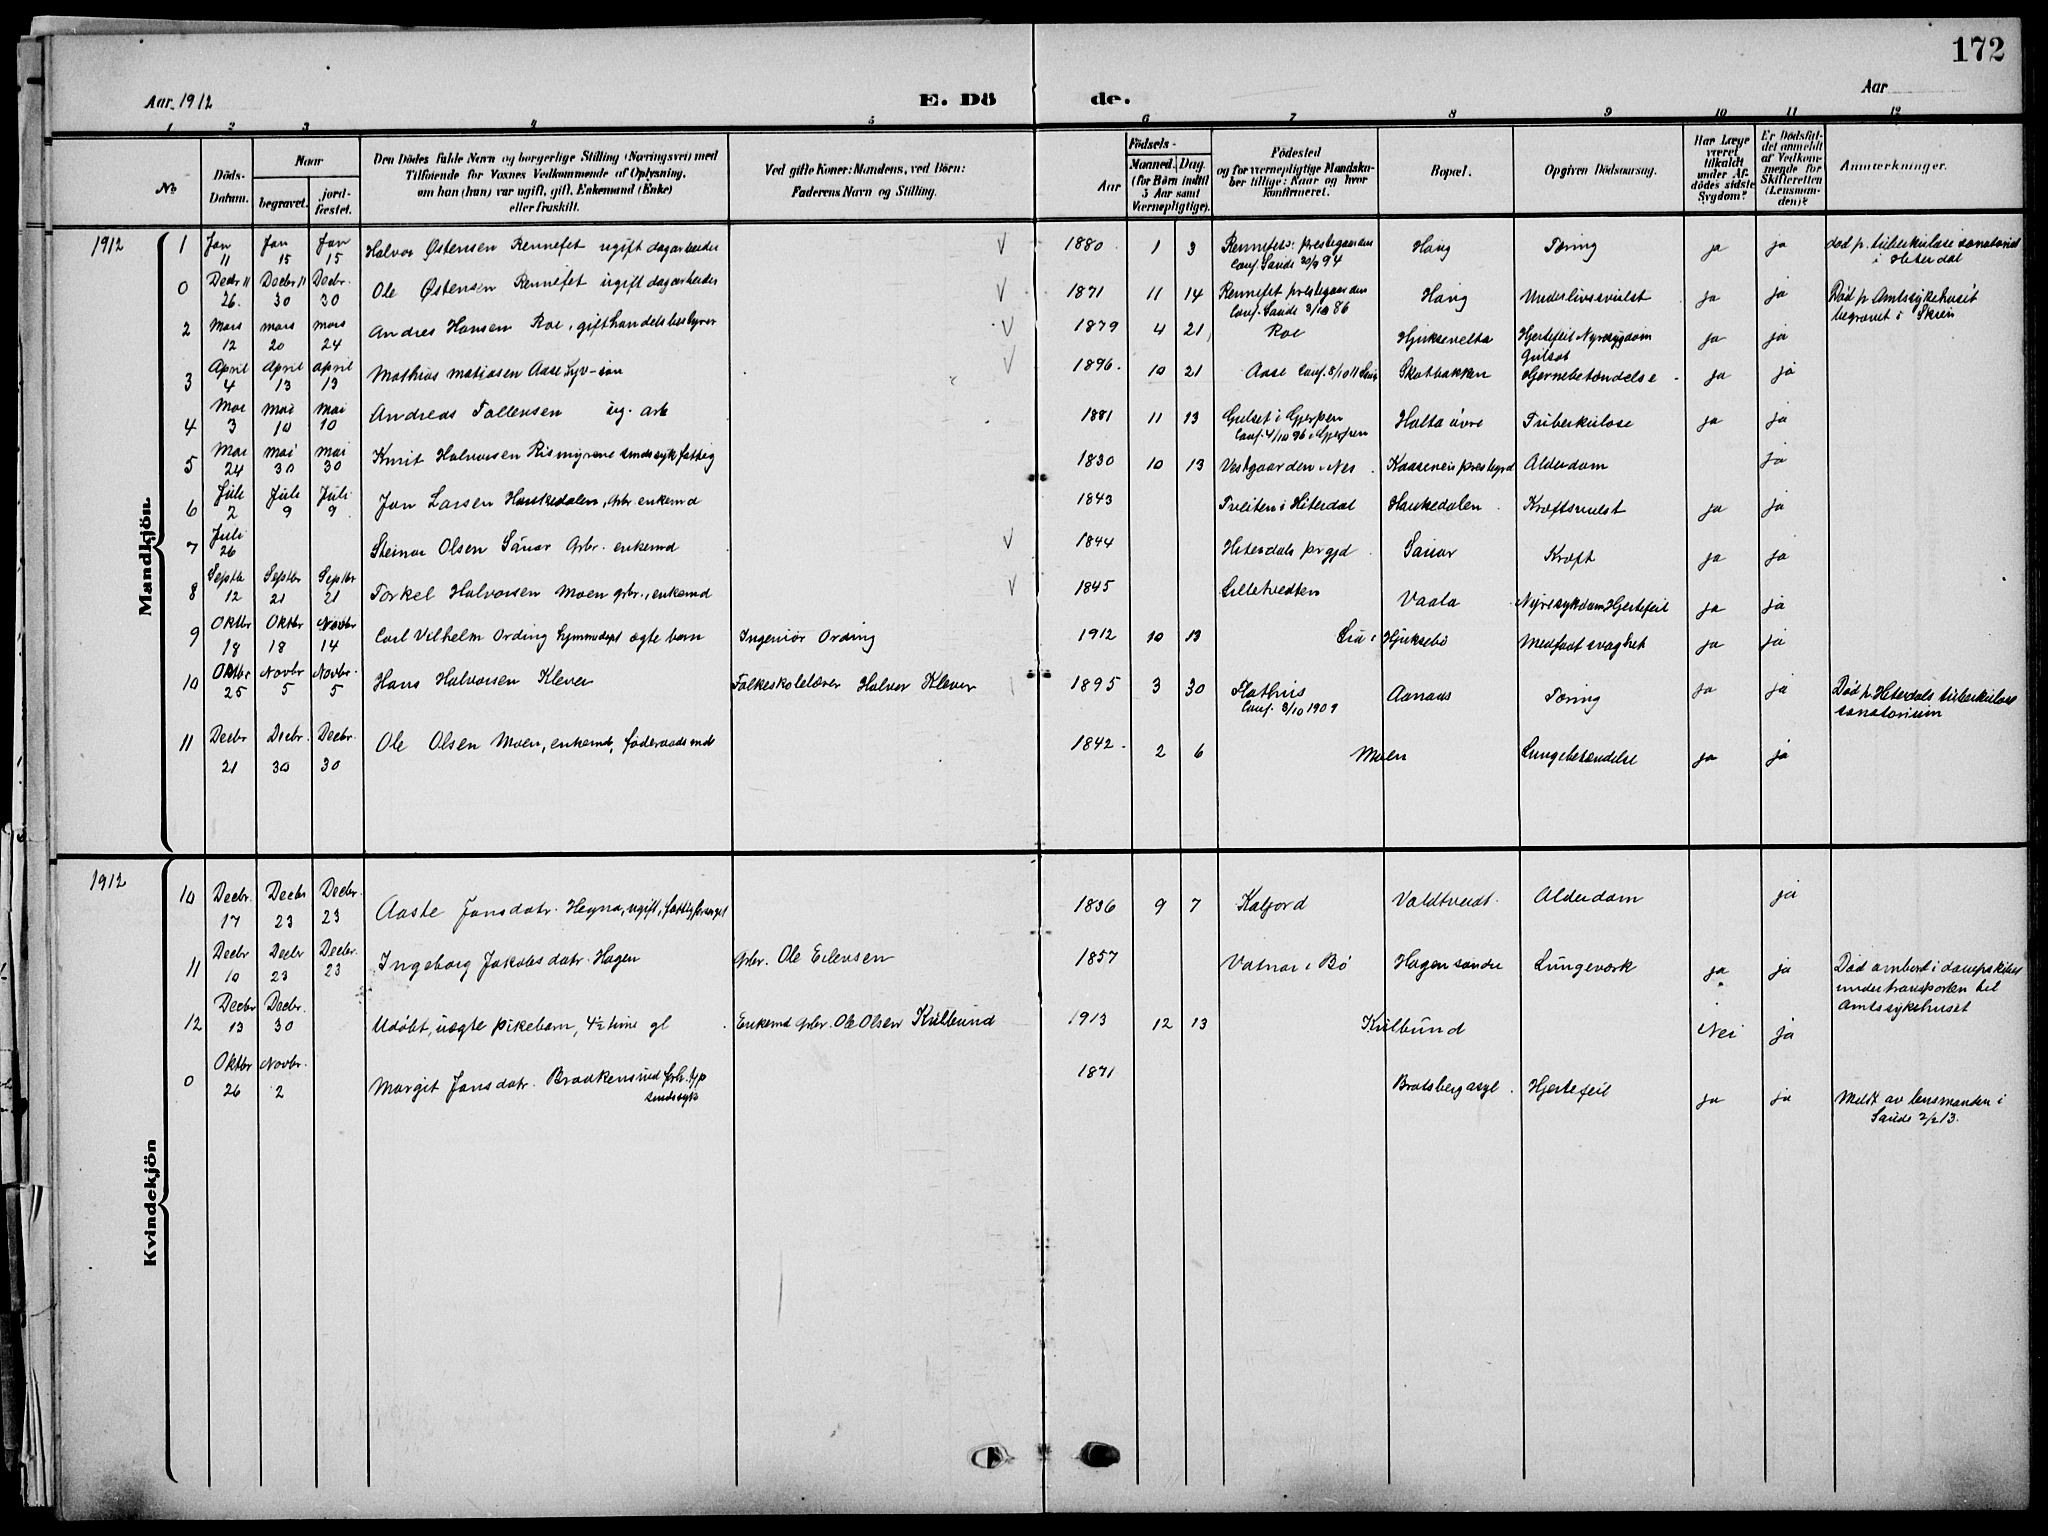 172
Aar. 1912
E. Dö
de.
Aar
1 2 3 4 5 6 7 8 9 10 11 12
No
Döds-Datum.
Naar
begravet.
jord-fæstet.
Den Dödes fulde Navn og borgerlige Stilling (Næringsvei) med
Tilföiende for Voxnes Vedkommende af Oplysning,
om han (hun) var ugift, gift, Enkemand (Enke)
eller fraskilt.
Ved gifte Koner: Mandens, ved Börn:
Faderens Navn og Stilling.
Födsels-
Aar
Maaned. Dag.
(for Börn indtil
5 Aar samt
Værnepligtige).
Födested
og for værnepligtige Mandska-
ber tillige: Naar og hvor
konfirmeret.
Bopæl.
Opgiven Dödsaarsag.
Har Læge
været
tilkaldt
under Af-
dödes sidste
Sygdom?
Er Dödsfal-
det anmeldt
af Vedkom-
mende for
Skifteretten
(Lensman-
den)?
Anmærkninger.
Mandkjön.
1912 1 Jan 11 Jan 15 Jan 15 Halvor Østensen Rennefet ugift dagarbeider 1880 1 3 Rennefet prestegaarden Conf. Saude 30/9 94 Haug Tæring ja ja død p. tuberkulose sanatoriet i Hiterdal
0 Decbr 11 26. Decbr 11 30 Decbr. 30 Ole Østensen Rennefet ugift dagarbeider 1871 11 14 Rennefet prestegaarden Conf. Saude 3/10 86 Haug Underlivssvulst ja ja Død p Amtssykehuset begravet i Skien
2 Mars 12 mars 20 mars 24 Andres Hansen Roe, gift handelsbestyrer 1879 4 21 Roe Hjuksevelta Hjertefeil Nyresygdom Gulsot ja ja
3 April 4 April 13 april 13 Mathias Matiasen Aase Lyv-søn 1896. 10 21 Aase Conf. 8/10 11 Saude Skotbakken Hjernebetændelse ja ja
4 Mai 3 mai 10 mai 10 Andreas Tollevsen ug. arb 1881 11 13 Gulset i Gjerpen Conf. 4/10 96 i Gjerpen Holta øvre Tuberkulose ja ja
5 Mai 24 mai 30 mai 30 Knut Halvorsen Rismyrene sindssyk fattig 1830 10 13 Vestgaarden i Nes Kaaseneie prestegrd Alderdom ja
6 Juli 2 Juli 9 Juli 9 Jon Larsen Haukedalen, gbr. enkemd 1843 Tveiten i Hiterdal Haukedalen Kræftsvulst ja ja
7 Juli 26 Steinar Olsen Sauar Gbr. enkemd 1844 Hiterdals prgjd Sauar Kræft ja ja
8 Septb 12 Septbr 21 Septbr 21 Torkel Halvorsen Moen gbr., enkemd 1845 Lilletvedten Vaala Nyresykdom Hjertefeil ja ja
9 Oktbr 18 Oktbr 18 Novbr 14 Carl Vilhelm Ording hjemmedøpt ægte barn Ingeniør Ording 1912 10 13 Lia i Hjuksebø Medfødt svaghet ja ja
10 Oktbr 25 Novbr 5 Novbr. 5 Hans Halvorsen Kleven Folkeskolelærer Halvor Kleven 1895 3 30 Flathus Conf. 3/10 1909 Aanaas Tæring ja ja Død p Hiterdals tuberkulose sanatorium
11 Decbr 21 Decbr. 30 Decbr. 30 Ole Olsen Moen, enkemd, føderaadsmd 1842 2 6 Moen Lungebetændelse ja ja
Kvindekjön
1912 10 Decbr. 17 Decbr 23 Decbr. 23 Aaste Jonsdatr. Hegna, ugift, fattigforsørget 1836 9 7 Kalfjord Valdtvedt. Alderdom ja
11 Decbr 10 Decbr 23 Decbr. 23 Ingeborg Jakobsdatr. Hagen Gbr. Ole Eilevsen 1857 Vatnar i Bø Hagen søndre Lungeværk ja ja Død ombord i dampskibet under transporten til Amtssykehuset
12 Decbr 13 Decbr. 30 Udøbt, uægte pikebarn, 4½ time gl Enkemd Gbr. Ole Olsen Kulbund 1913 12 13 Kulbund Nei ja
0 Oktbr 26 Novbr. 2 Margit Jonsdatr. Braaken sindssyk 1871 Bratsberg asyl Hjertefeil ja ja Meldt av lensmanden i Saude 2/2 13.